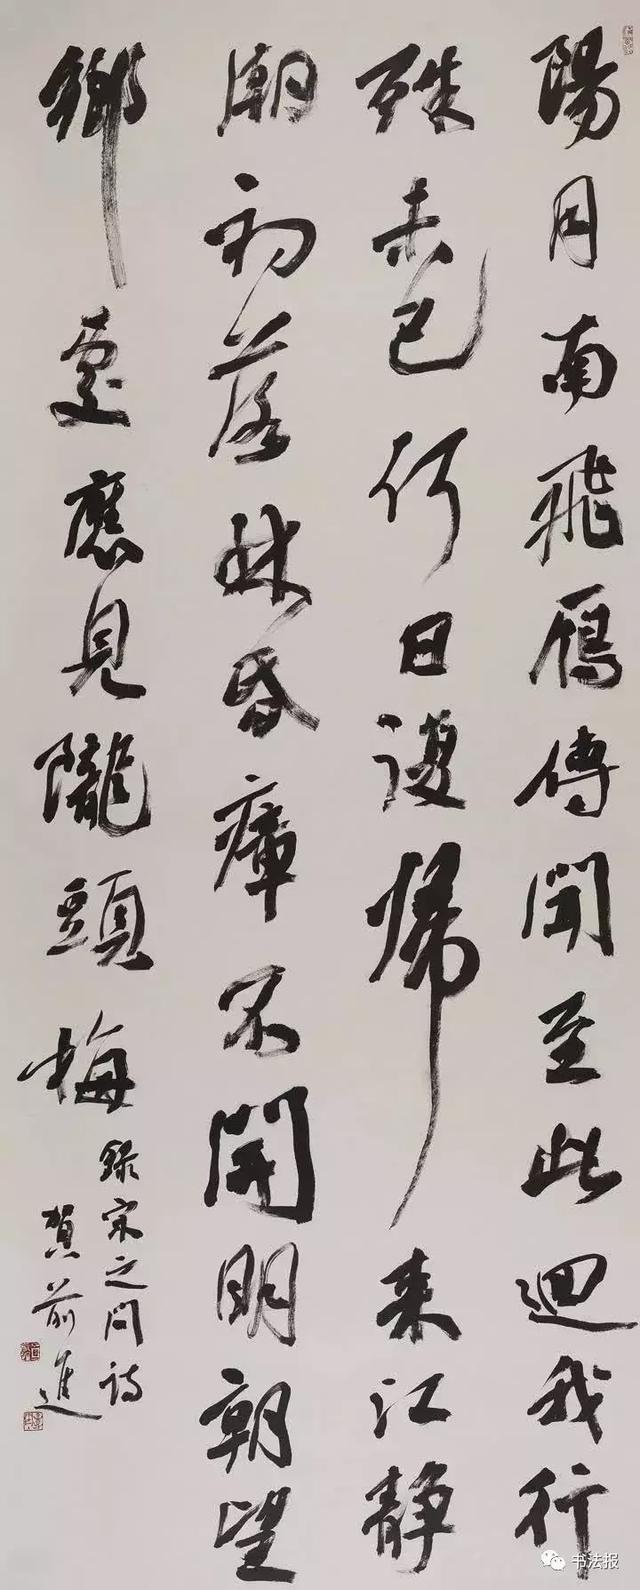 陽月南飛雁傳聞至此迴我行
殊未已何日復歸來江靜
潮初落林昏瘴不開明朝望
鄉處應見隴頭梅
錄宋之問詩
賀前進
书法报